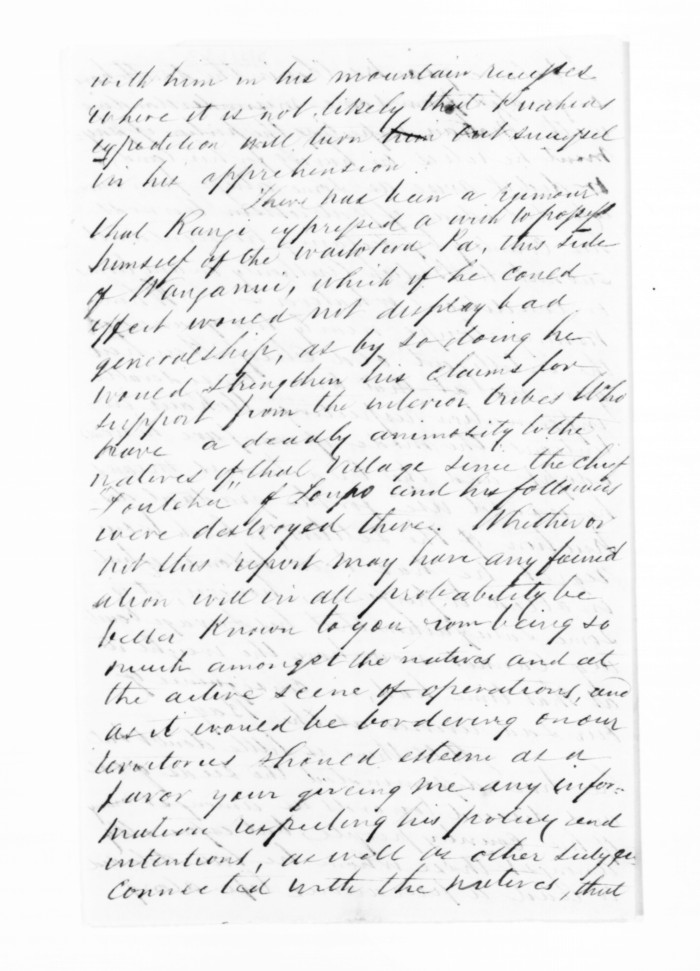 with him in his mountain recesses
where it is not likely that Ruahias
expedition will turn out successful
in his apprehension.
There has been a rumour
that Rangi expressed a wish to possess
himself of the Waitotara Pa, this side
of Wanganui, which if he could
effect would not display bad
generalship, as by so doing he
would strengthen his claims for
support from the interior tribes who
have a deadly animosity to the
natives of that village since the chief
of Toupo and his followers
were destroyed there. Whether or
not this report may have any found
ation will in all probability be
better known to you from being so
much amongst the natives and at
the active scene of operations, and
as it would be bordering on our
territories should esteem as a
favor your giving me any infor=
mation respecting his policy and
intentions, as well as other subjects
connected with the natives, that